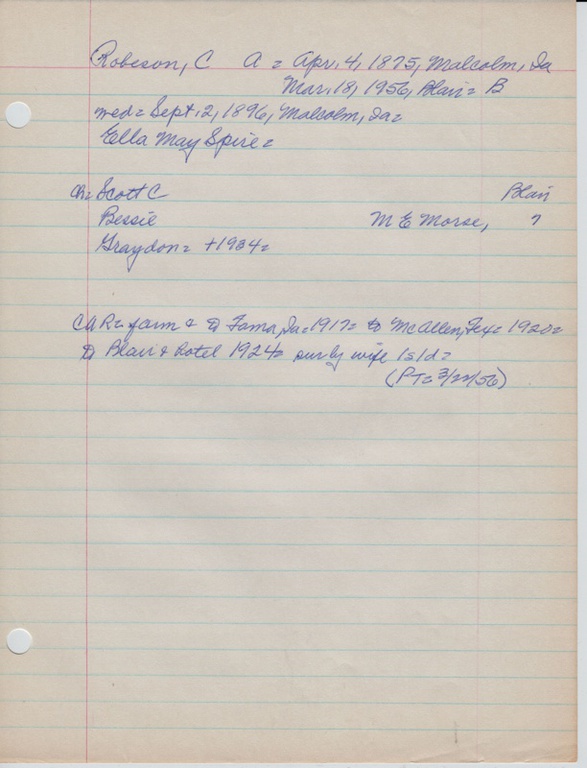 Robeson, C A = Apr. 4, 1875, Malcolm, Ia
Mar. 18, 1956, Blair = B
med = Sept. 2, 1896, Malcolm, Ia =
Ella May Spire =
Ch = Scott C Blair
Bessie M E Morse, ?
Graydon = +1934 =
CAR = farm & to Tama, Ia = 1917 = to McAllen, Tex = 1920 =
to Blair & hotel 1924 = surv by wife 1s/d =
(PT = 3/22/56)